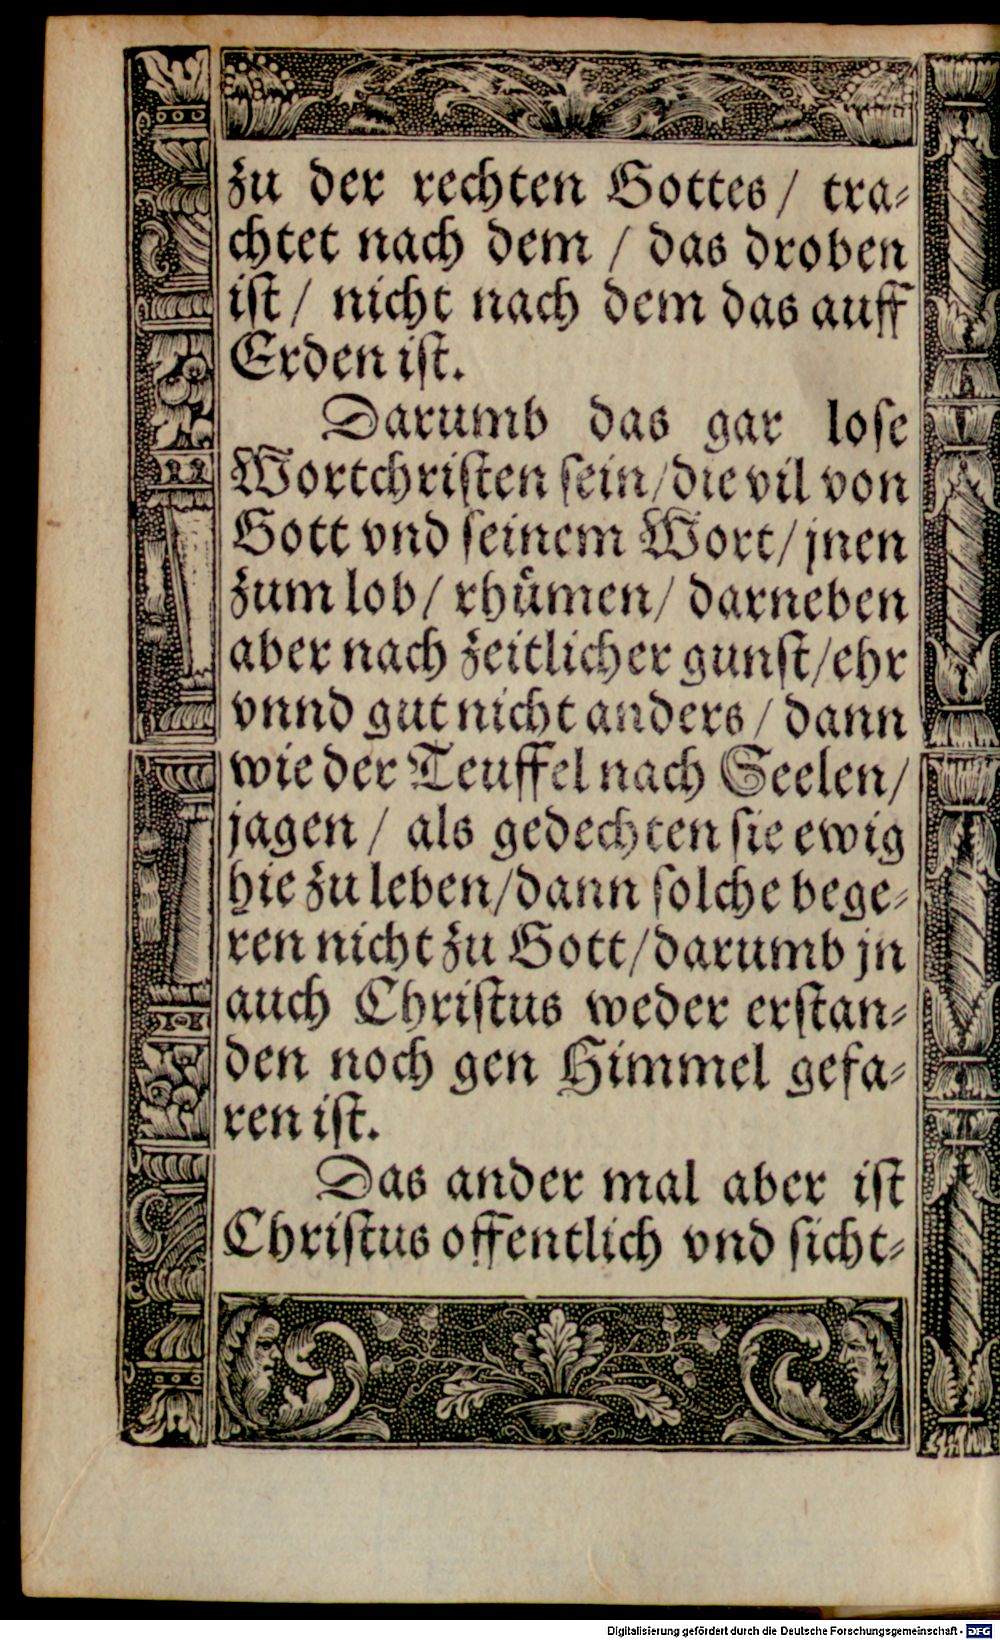 zu der rechten Gottes / tra-
chtet nach dem / das droben
ist / nicht nach dem das auff
Erden ist.
Darumb das gar lose
Wortchristen sein / die vil von
Gott vnd seinem Wort / jnen
zum lob / rhümen / darneben
aber nach zeitlicher gunst / ehr
vnnd gut nicht anders / dann
wie der Teuffel nach Seelen /
jagen / als gedechten sie ewig
hie zu leben / dann solche bege-
ren nicht zu Gott / darumb jn
auch Christus weder erstan-
den noch gen Himmel gefa-
ren ist.
Das ander mal aber ist
Christus offentlich vnd sicht-
Digitalisierung gefördert durch die Deutsche Forschungsgemeinschaft - DFG